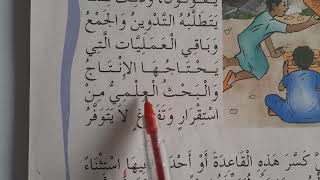 يَتَطَلَّبُهُ التَّدْوِينُ وَالْجَمْعُ
وَبَاقِي الْعَمَلِيَّاتِ الَّتِي
يَحْتَاجُهَا الْإِنْتَاجُ
وَالْبَحْثُ الْعِلْمِيُّ مِنْ
اسْتِقْرَارٍ وَتَفَرُّغٍ لَا يَتَوَفَّرُ
كَسَّرَ هَذِهِ الْقَاعِدَةَ أَوْ أَحْدَثَ فِيهَا اسْتِثْنَاءً